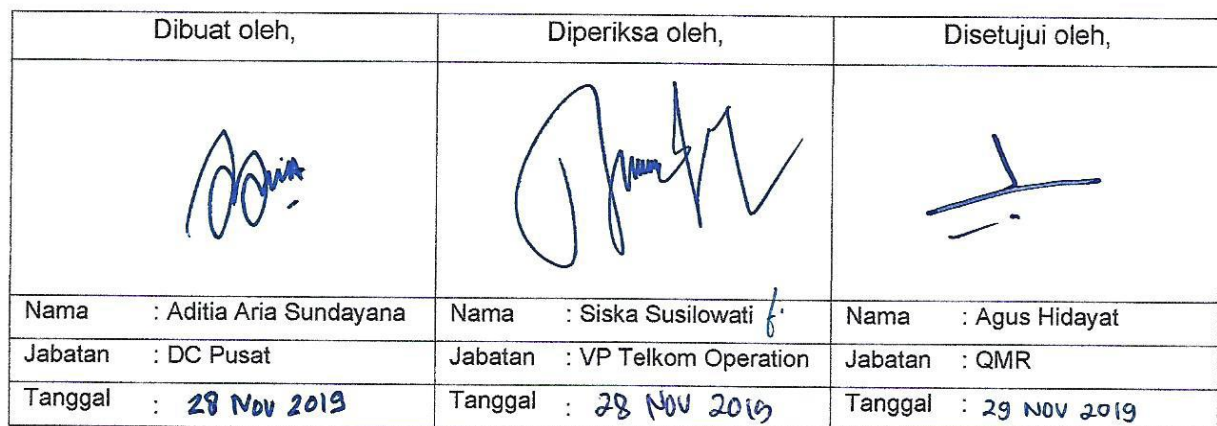 Dibuat oleh, Diperiksa oleh, Disetujui oleh,
Nama : Aditia Aria Sundayana Nama : Siska Susilowati Nama : Agus Hidayat
Jabatan : DC Pusat Jabatan : VP Telkom Operation Jabatan : QMR
Tanggal : 28 Nov 2019 Tanggal : 28 NOV 2019 Tanggal : 29 NOV 2019